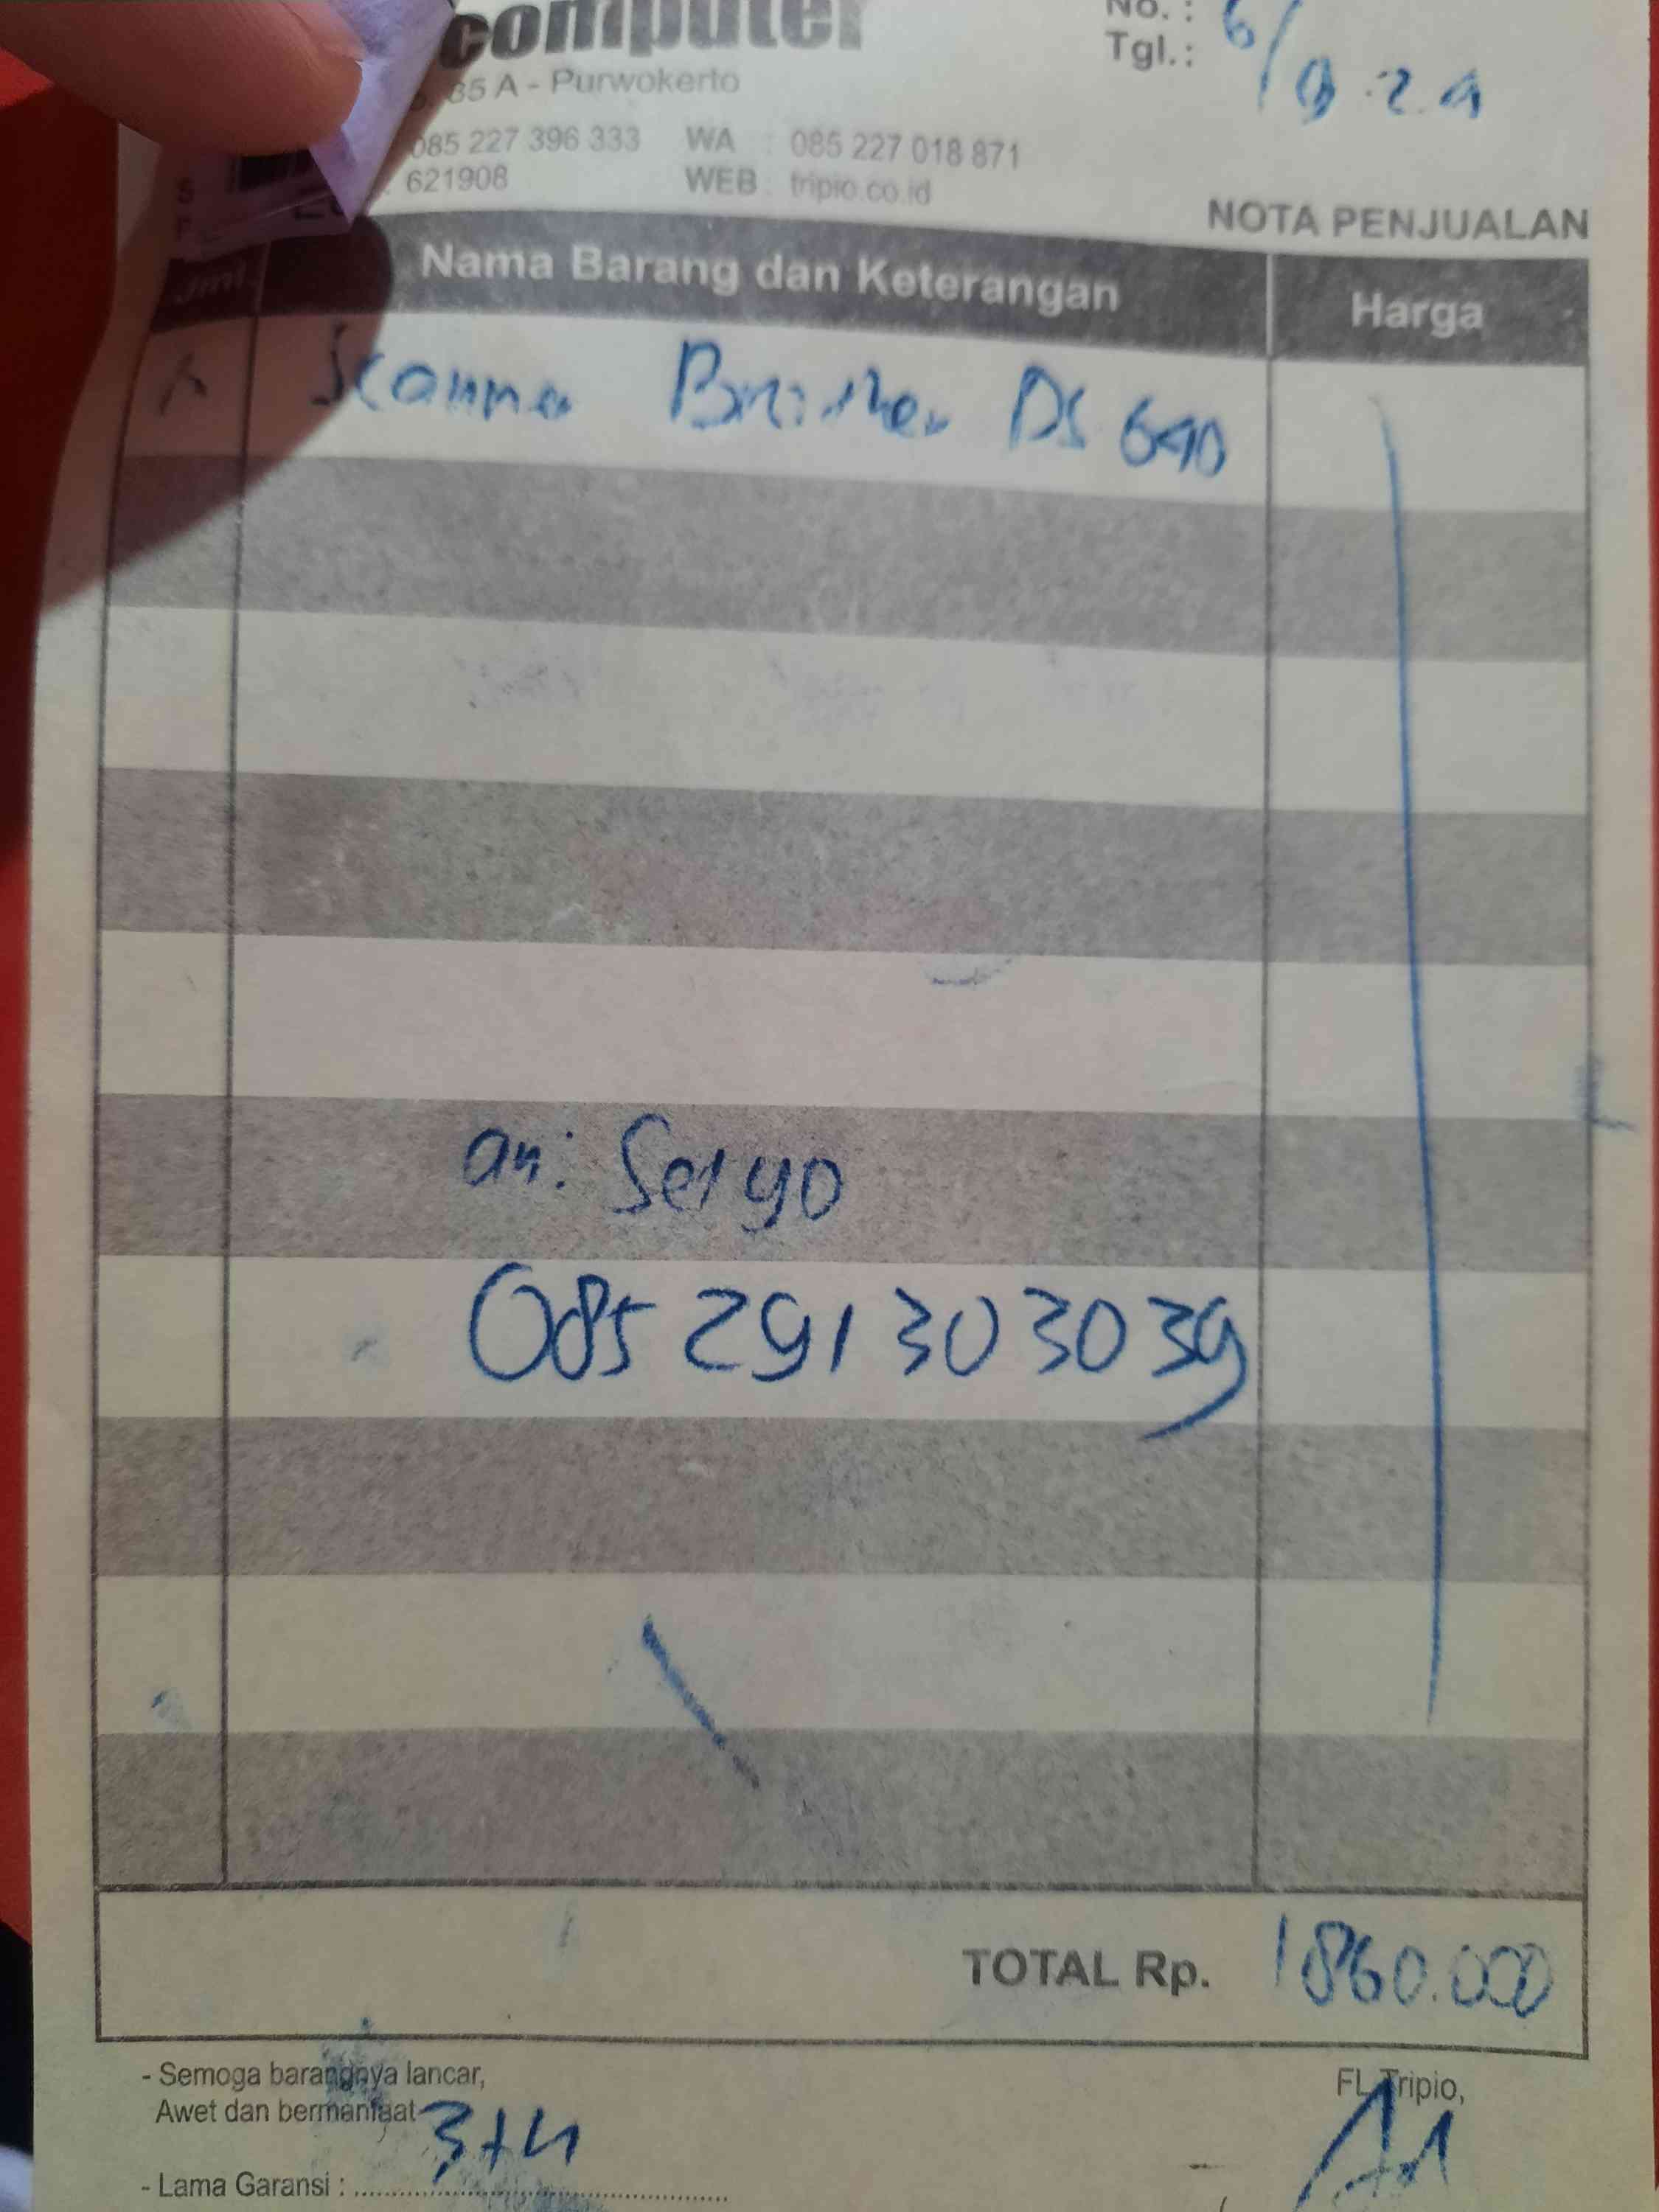 computer
No. :
Tgl. : 6/9.24
35 A - Purwokerto
085 227 396 333 WA : 085 227 018 871
621908 WEB : tripio.co.id
NOTA PENJUALAN
Jml Nama Barang dan Keterangan Harga
1 Scanner Brother DS 640
an: Setyo
085 291 303039
TOTAL Rp. 1860.000
- Semoga barangnya lancar,
Awet dan bermanfaat
FL Tripio,
- Lama Garansi : 3th